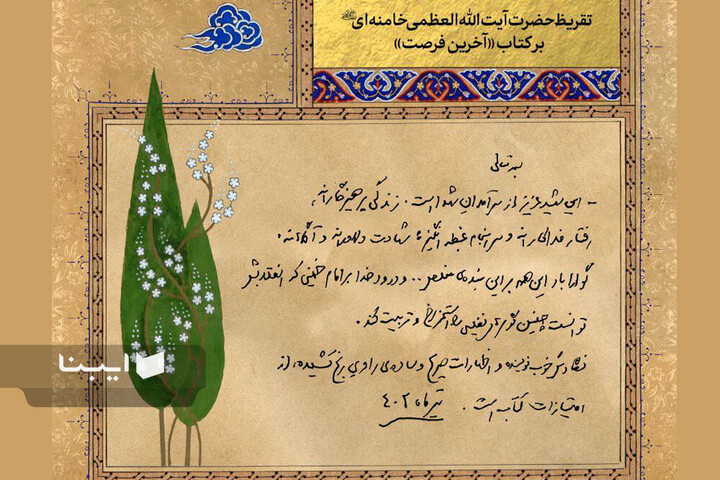 تقریظ حضرت آیت الله العظمی خامنه‌ای
بر کتاب «آخرین فرصت»
بسمه تعالی
- این شهید عزیز از سرآمدان شهدا است. زندگی پرهیزگارانه،
رفتار فداکارانه و سرانجام غبطه‌انگیز؛ شهادت داوطلبانه و آگاهانه.
گوارا باد این همه بر این بنده‌ی مخلص.. و درود خدا بر امام خمینی که انقلابش
توانست چنین گوهرهای نفیسی را استخراج و تربیت کند.
نگارش خوب نویسنده و اظهارات صریح و ساده‌ی راوی رنج کشیده، از
امتیازات کتاب است. تیر ماه ۴۰۲
ایبنا